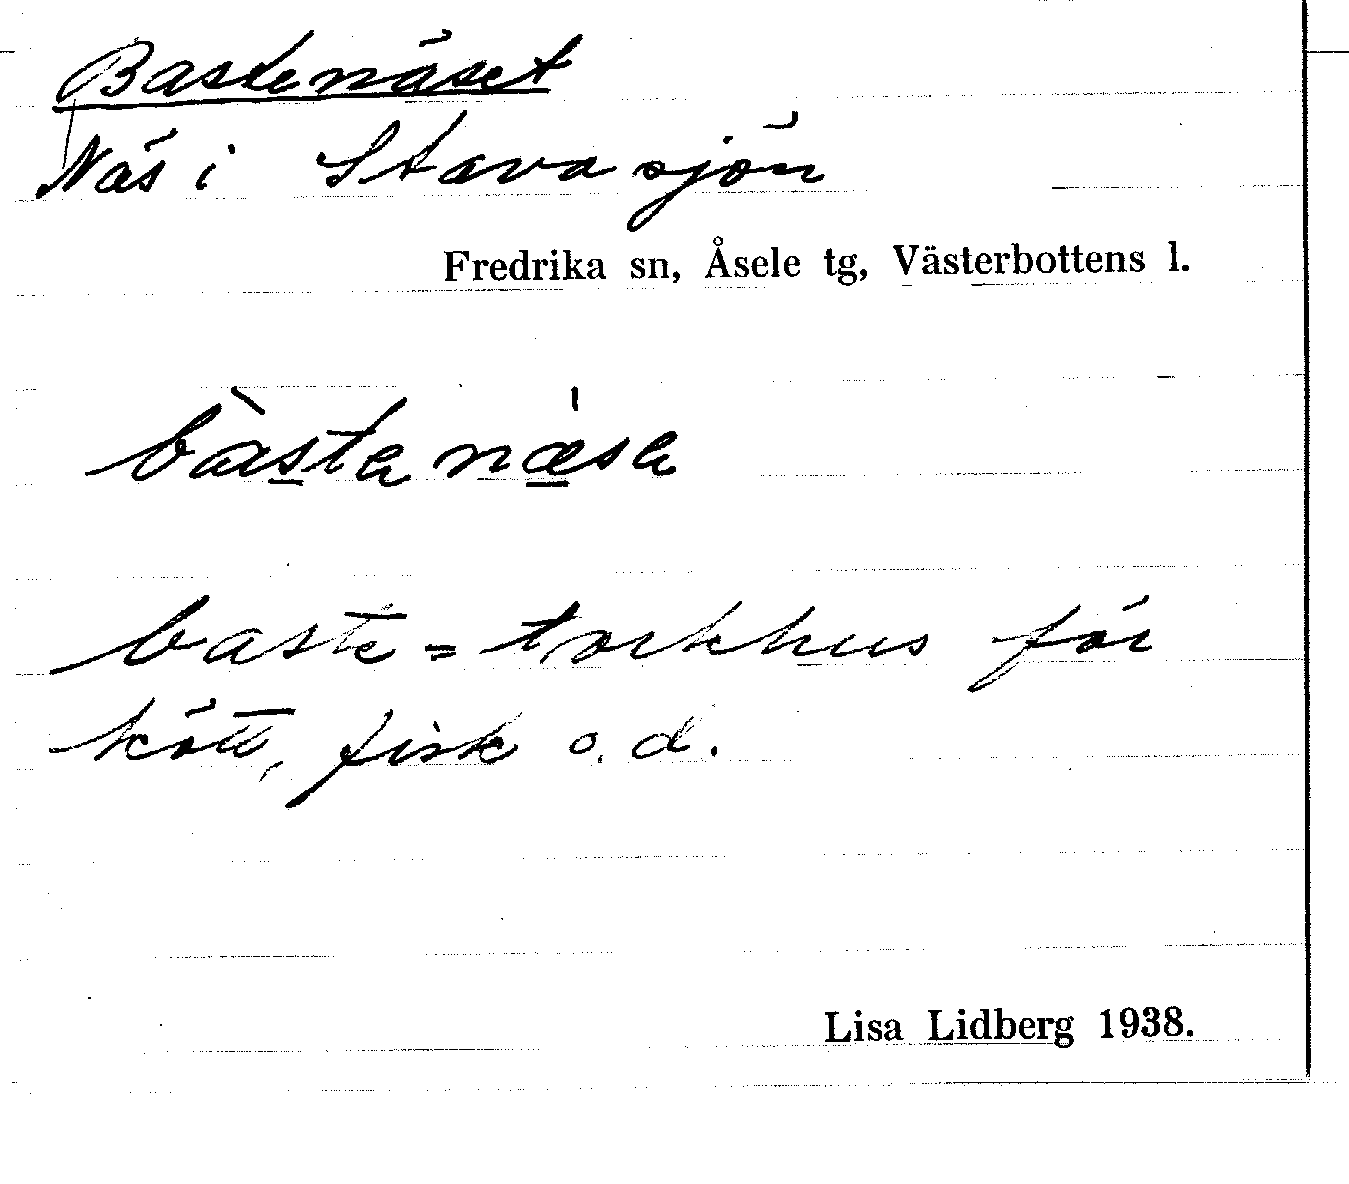 Bastenäset
Näs i Stavasjön
Fredrika sn, Åsele tg, Västerbottens l.
bàstanæ̍sa
baste = torkhus för
kött, fisk o.d.
Lisa Lidberg 1938.